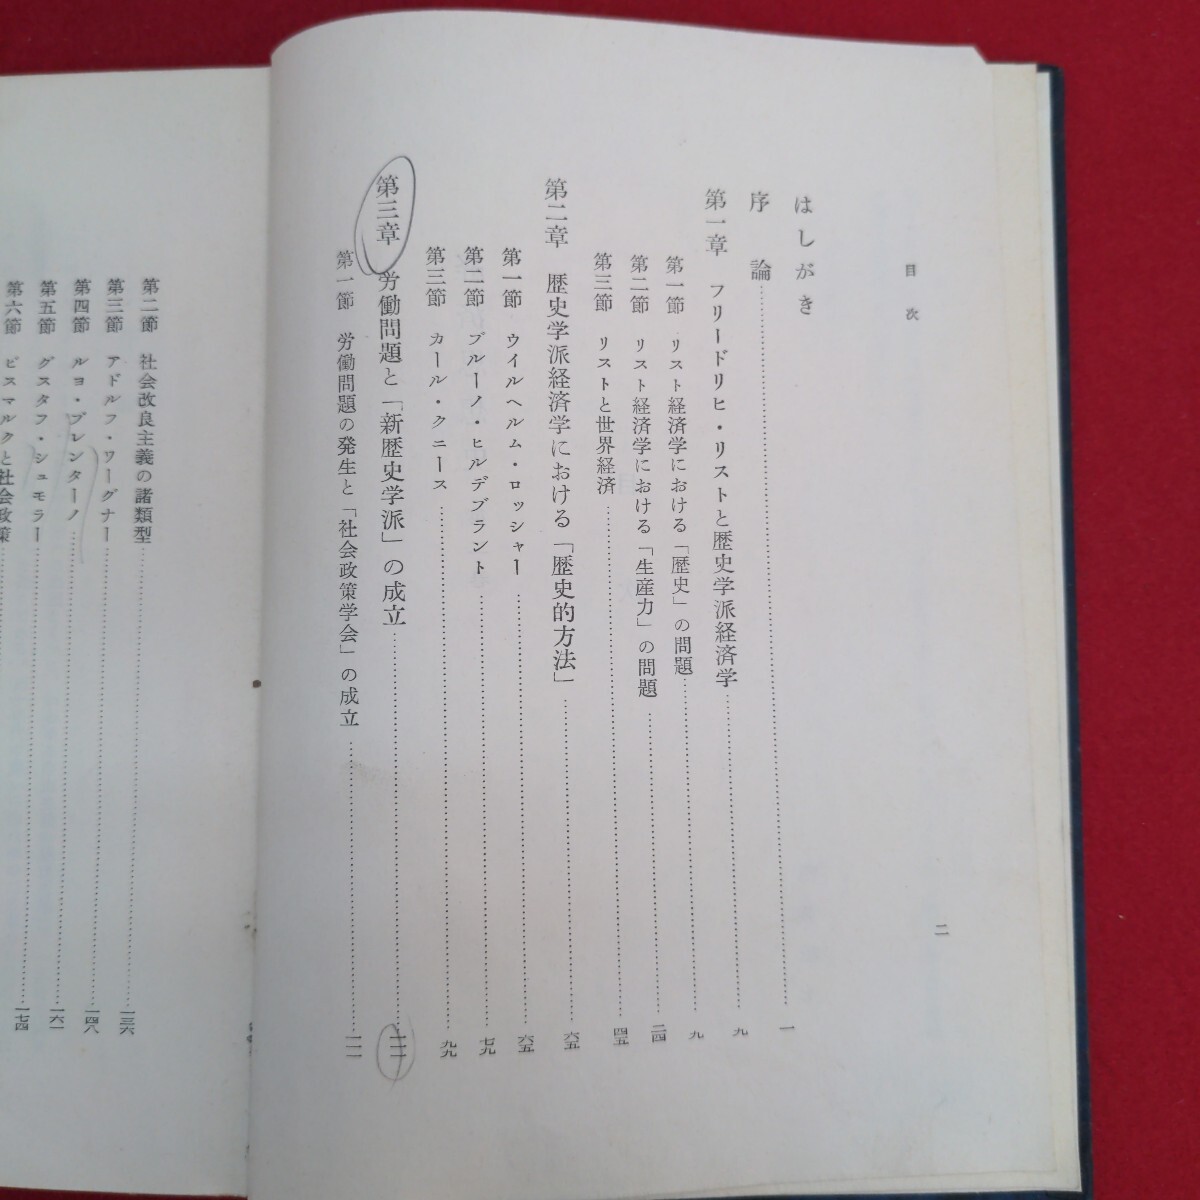 目次
二
はしがき
序論……一
第一章 フリードリヒ・リストと歴史学派経済学……九
第一節 リスト経済学における「歴史」の問題……九
第二節 リスト経済学における「生産力」の問題……二四
第三節 リストと世界経済……四五
第二章 歴史学派経済学における「歴史的方法」……六五
第一節 ウイルヘルム・ロッシャー……六五
第二節 ブルーノ・ヒルデブラント……七九
第三節 カール・クニース……九九
第三章 労働問題と「新歴史学派」の成立……一一一
第一節 労働問題の発生と「社会政策学会」の成立……一一一
第二節 社会改良主義の諸類型……一三六
第三節 アドルフ・ワーグナー……一四八
第四節 ルヨ・ブレンターノ……一六一
第五節 グスタフ・シュモラー……一七四
第六節 ビスマルクと社会政策